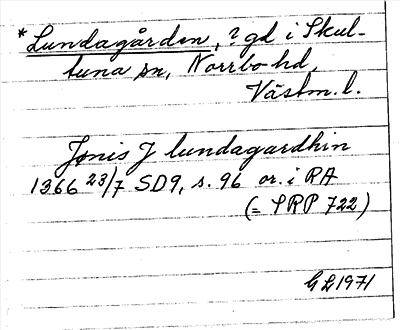 *Lundagården, ? gd i Skul-
tuna sn, Norrbo hd,
Västm. l.
Jønis J lundagardhin
1366 23/7 SD9, s. 96 or. i RA
(= SRP 722)
GL 1971